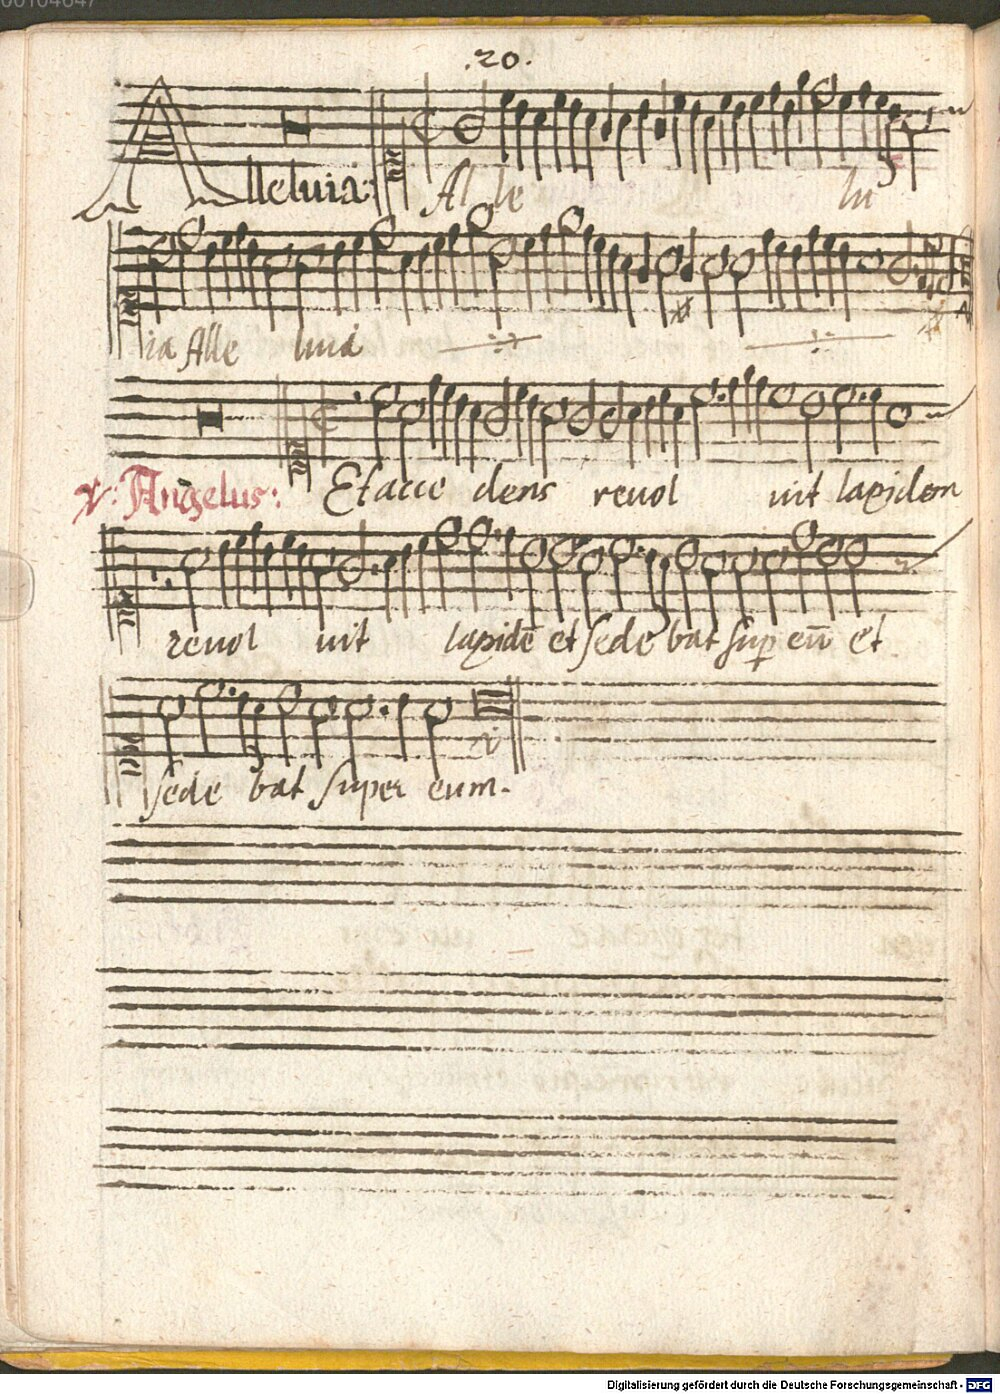 .20.
Alleluia: Al le lu
ia Alle luia
V: Angelus: Et acce dens reuol uit lapidem
reuol uit lapidē et sede bat sup eū et
sede bat super eum.
Digitalisierung gefördert durch die Deutsche Forschungsgemeinschaft - DFG